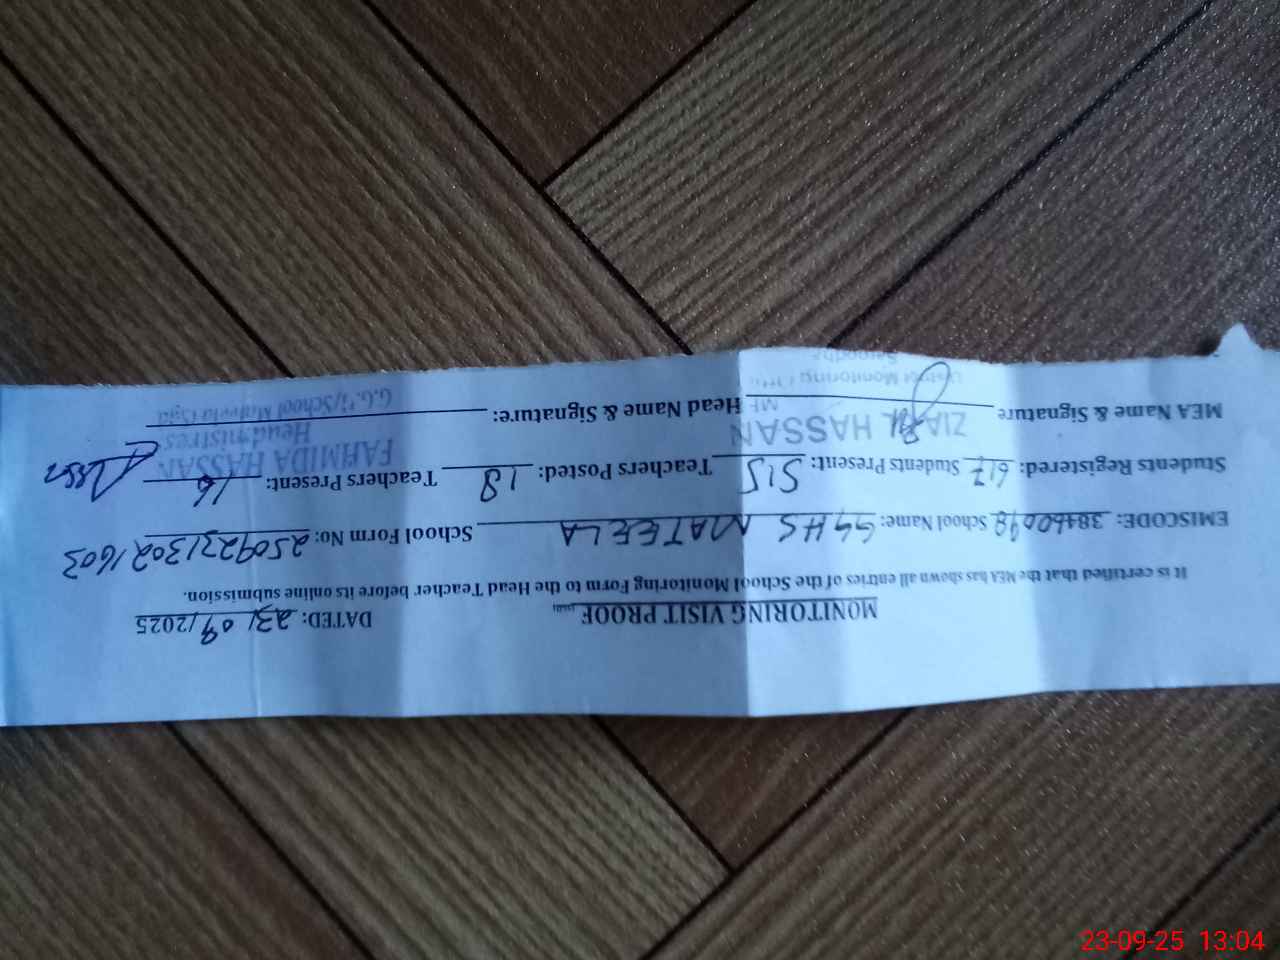 MONITORING VISIT PROOF
DATED: 23/09/2025
It is certified that the MEA has shown all entries of the School Monitoring Form to the Head Teacher before its online submission.
EMISCODE: 38460098 School Name: GGHS MATEELA School Form No: 25092313021603
Students Registered: 617 Students Present: 515 Teachers Posted: 18 Teachers Present: 16
MEA Name & Signature Head Name & Signature:
ZIA UL HASSAN
District Monitoring
Sargodha
FAHMIDA HASSAN
Headmistress
G.G. School Mateela
23-09-25 13:04